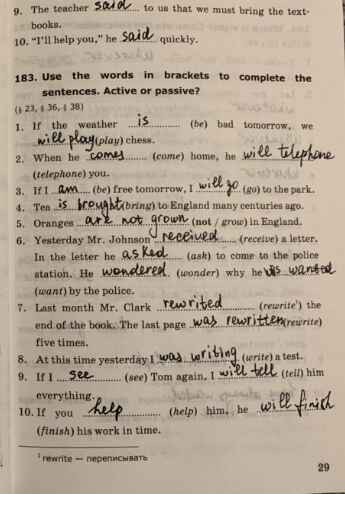 9. The teacher said to us that we must bring the text-
books.
10. "I'll help you," he said quickly.
183. Use the words in brackets to complete the
sentences. Active or passive?
(§ 23, § 36, § 38)
1. If the weather is (be) bad tomorrow, we
will play (play) chess.
2. When he comes (come) home, he will telephone
(telephone) you.
3. If I am (be) free tomorrow, I will go (go) to the park.
4. Tea is brought (bring) to England many centuries ago.
5. Oranges are not grown (not / grow) in England.
6. Yesterday Mr. Johnson received (receive) a letter.
In the letter he asked (ask) to come to the police
station. He wondered (wonder) why he was wanted
(want) by the police.
7. Last month Mr. Clark rewrited (rewrite¹) the
end of the book. The last page was rewritten (rewrite)
five times.
8. At this time yesterday I was writing (write) a test.
9. If I see (see) Tom again, I will tell (tell) him
everything.
10. If you help (help) him, he will finish
(finish) his work in time.
¹ rewrite — переписывать
29